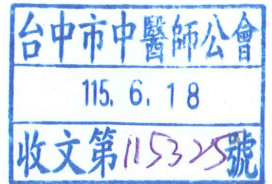 台中市中醫師公會
115. 6. 18
收文第115325號